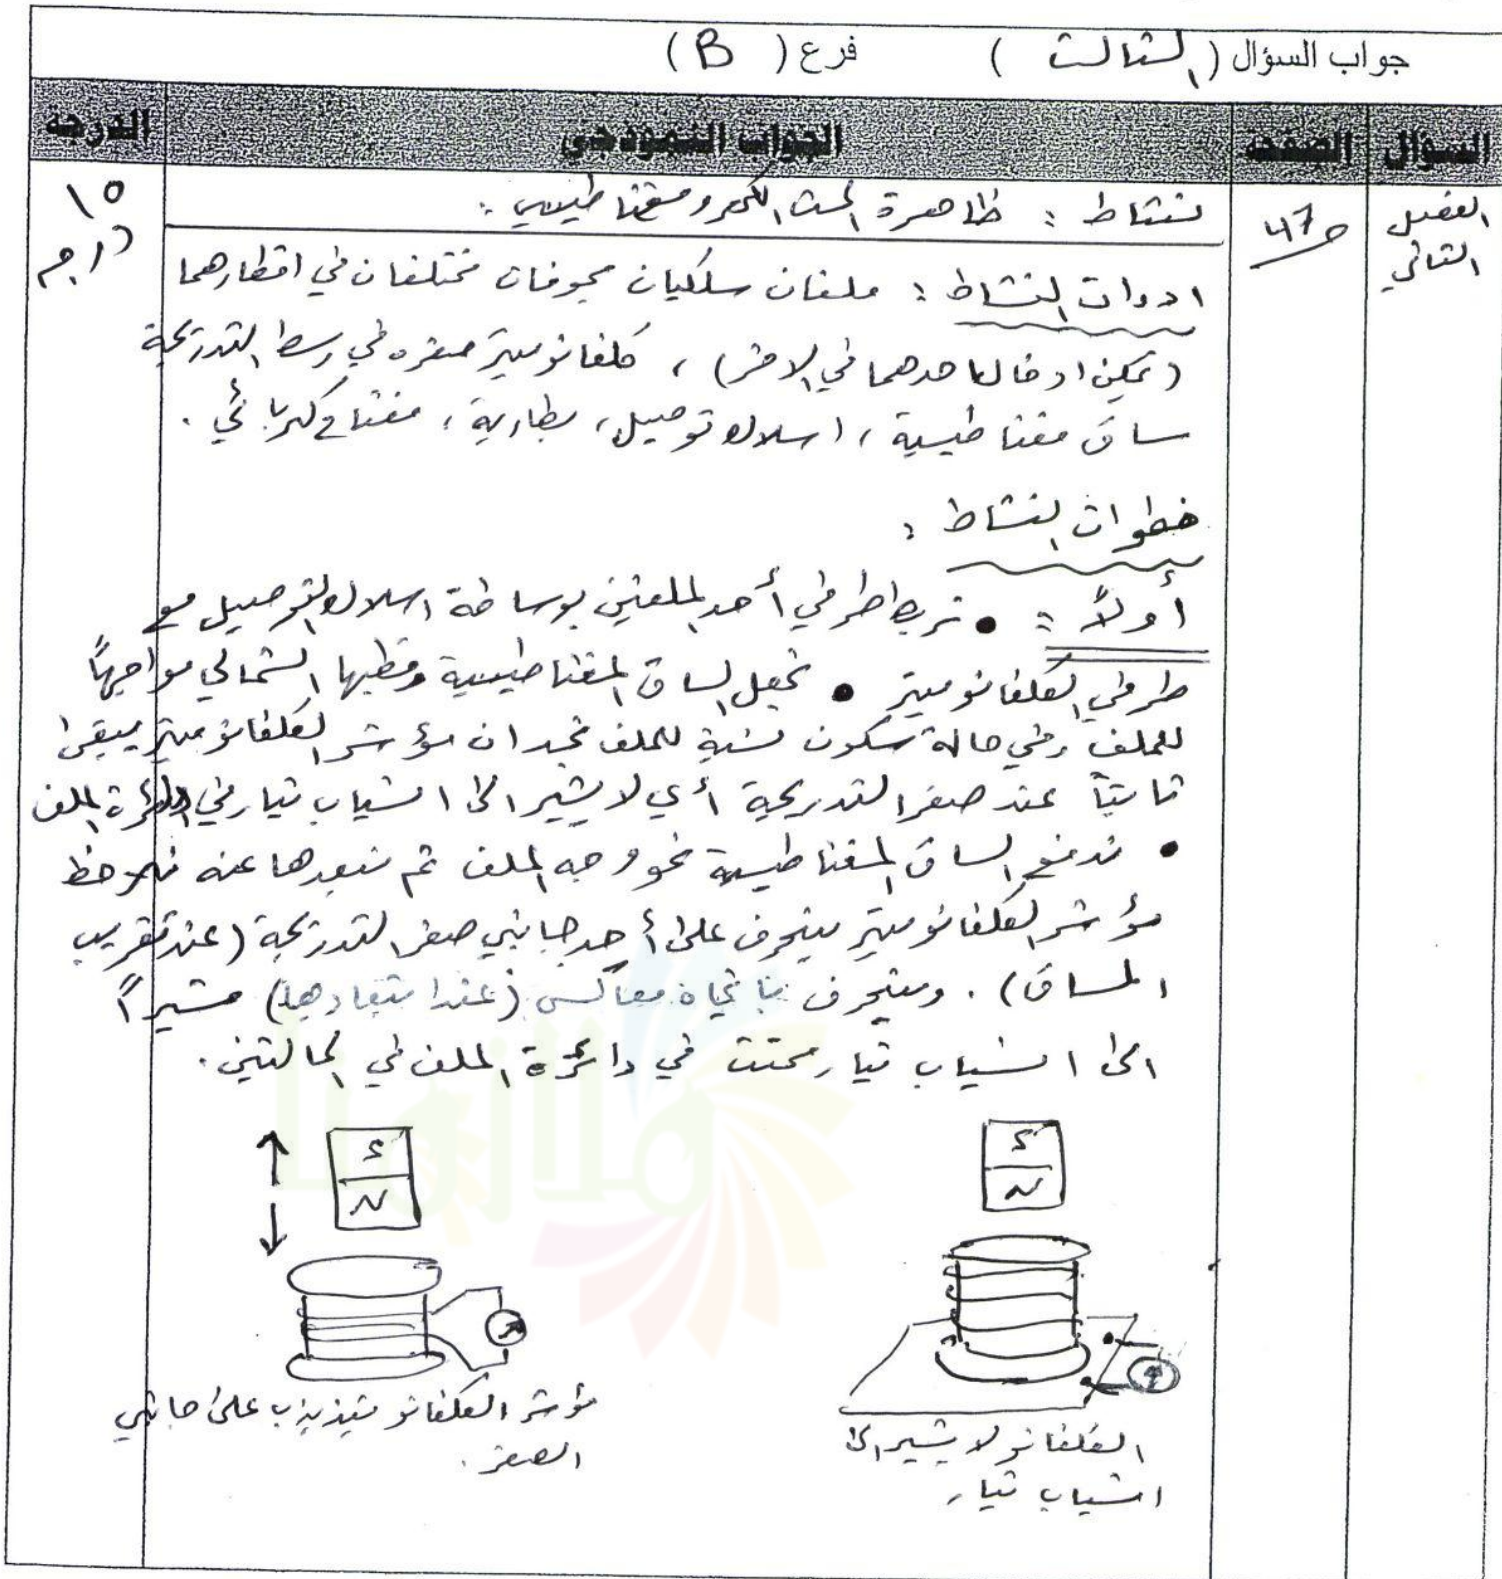 جواب السؤال ( الثالث ) فرع ( B )
السؤال الصفحة الجواب النموذجي الدرجة
الفصل الثاني
ص47
١٥ درجة
نشاط : ظاهرة الحث الكهرومغناطيسي :
ادوات النشاط : ملفان سلكيان مجوفان مختلفان في اقطارهما
(يمكن ادخال احدهما في الاخر) ، كلفانوميتر صفره في وسط التدريجة
ساق مغناطيسية ، اسلاك توصيل ، بطارية ، مفتاح كهربائي .
خطوات النشاط :
أولاً : • نربط طرفي أحد الملفين بوساطة اسلاك التوصيل مع
طرفي الكلفانوميتر • نجعل الساق المغناطيسية وقطبها الشمالي مواجهاً
للملف وفي حالة سكون نسبة للملف نجد ان مؤشر الكلفانوميتر يبقى
ثابتاً عند صفر التدريجة أي لا يشير الى انسياب تيار في دائرة الملف
• ندفع الساق المغناطيسية نحو وجه الملف ثم نبعدها عنه نلاحظ
مؤشر الكلفانوميتر ينحرف على أحد جانبي صفر التدريجة (عند تقريب
الساق) . وينحرف باتجاه معاكس (عند ابتعادها) مشيراً
الى انسياب تيار محتث في دائرة الملف في الحالتين .
S
N
S
N
الكلفانو لا يشير الى
انسياب تيار
مؤشر الكلفانو يتذبذب على جانبي
الصفر .
ملازمنا